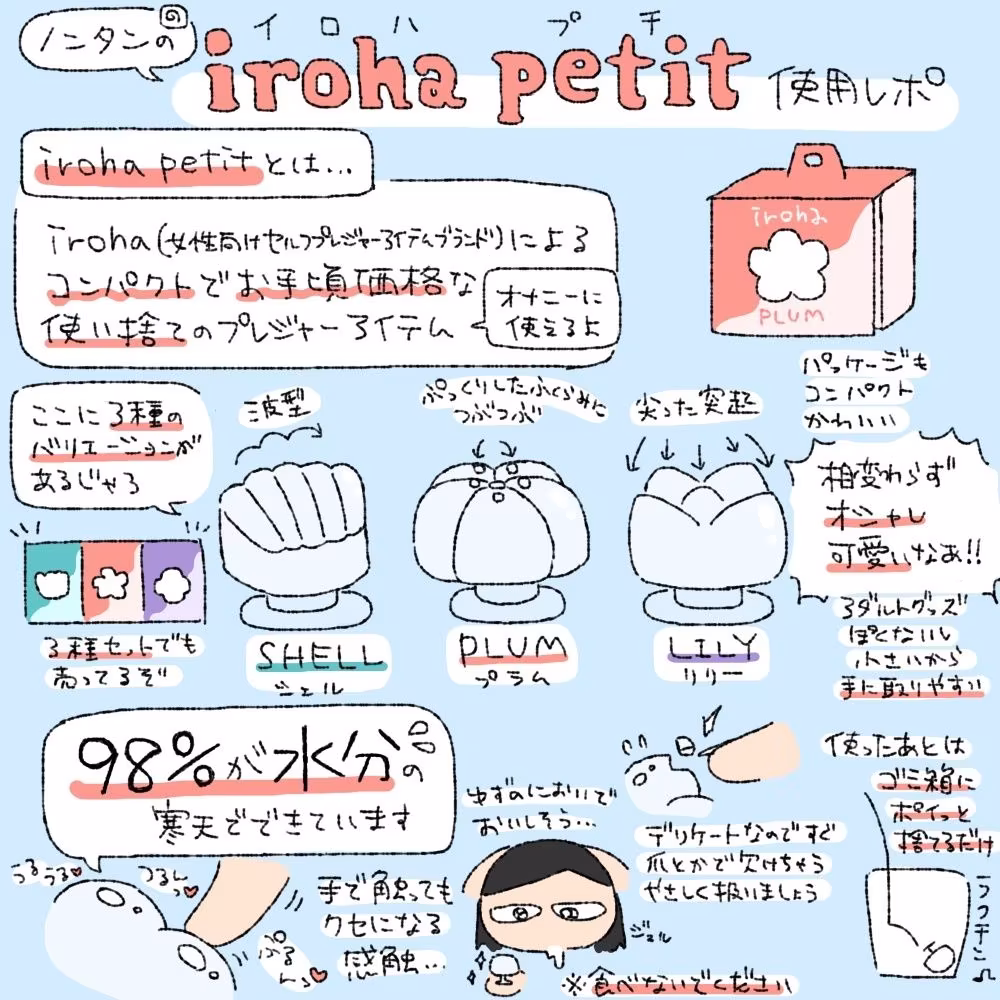 イロハ プチ
ノンタンの
iroha petit 使用レポ
iroha petitとは…
iroha(女性向けセルフプレジャーアイテムブランド)による
コンパクトでお手頃価格な
使い捨てのプレジャーアイテム
オナニーに
使えるよ
iroha
PLUM
パッケージも
コンパクト
かわいい
ここに3種の
バリエーションが
あるじゃろ
波型
ぷっくりしたふくらみに
つぶつぶ
尖った突起
相変わらず
オシャレ
可愛いなあ!!
アダルトグッズ
ぽくないし
小さいから
手に取りやすい
3種セットでも
売ってるぞ
SHELL
シェル
PLUM
プラム
LILY
リリー
98%が水分の
寒天でできています
つるつる♥
つるんっ♥
ぷるんっ♥
手で触っても
クセになる
感触…
ゆずのにおいで
おいしそう…
ジュル
※食べないでください
デリケートなのですぐ
爪とかで欠けちゃう
やさしく扱いましょう
使ったあとは
ゴミ箱に
ポイっと
捨てるだけ
ラクチン♫